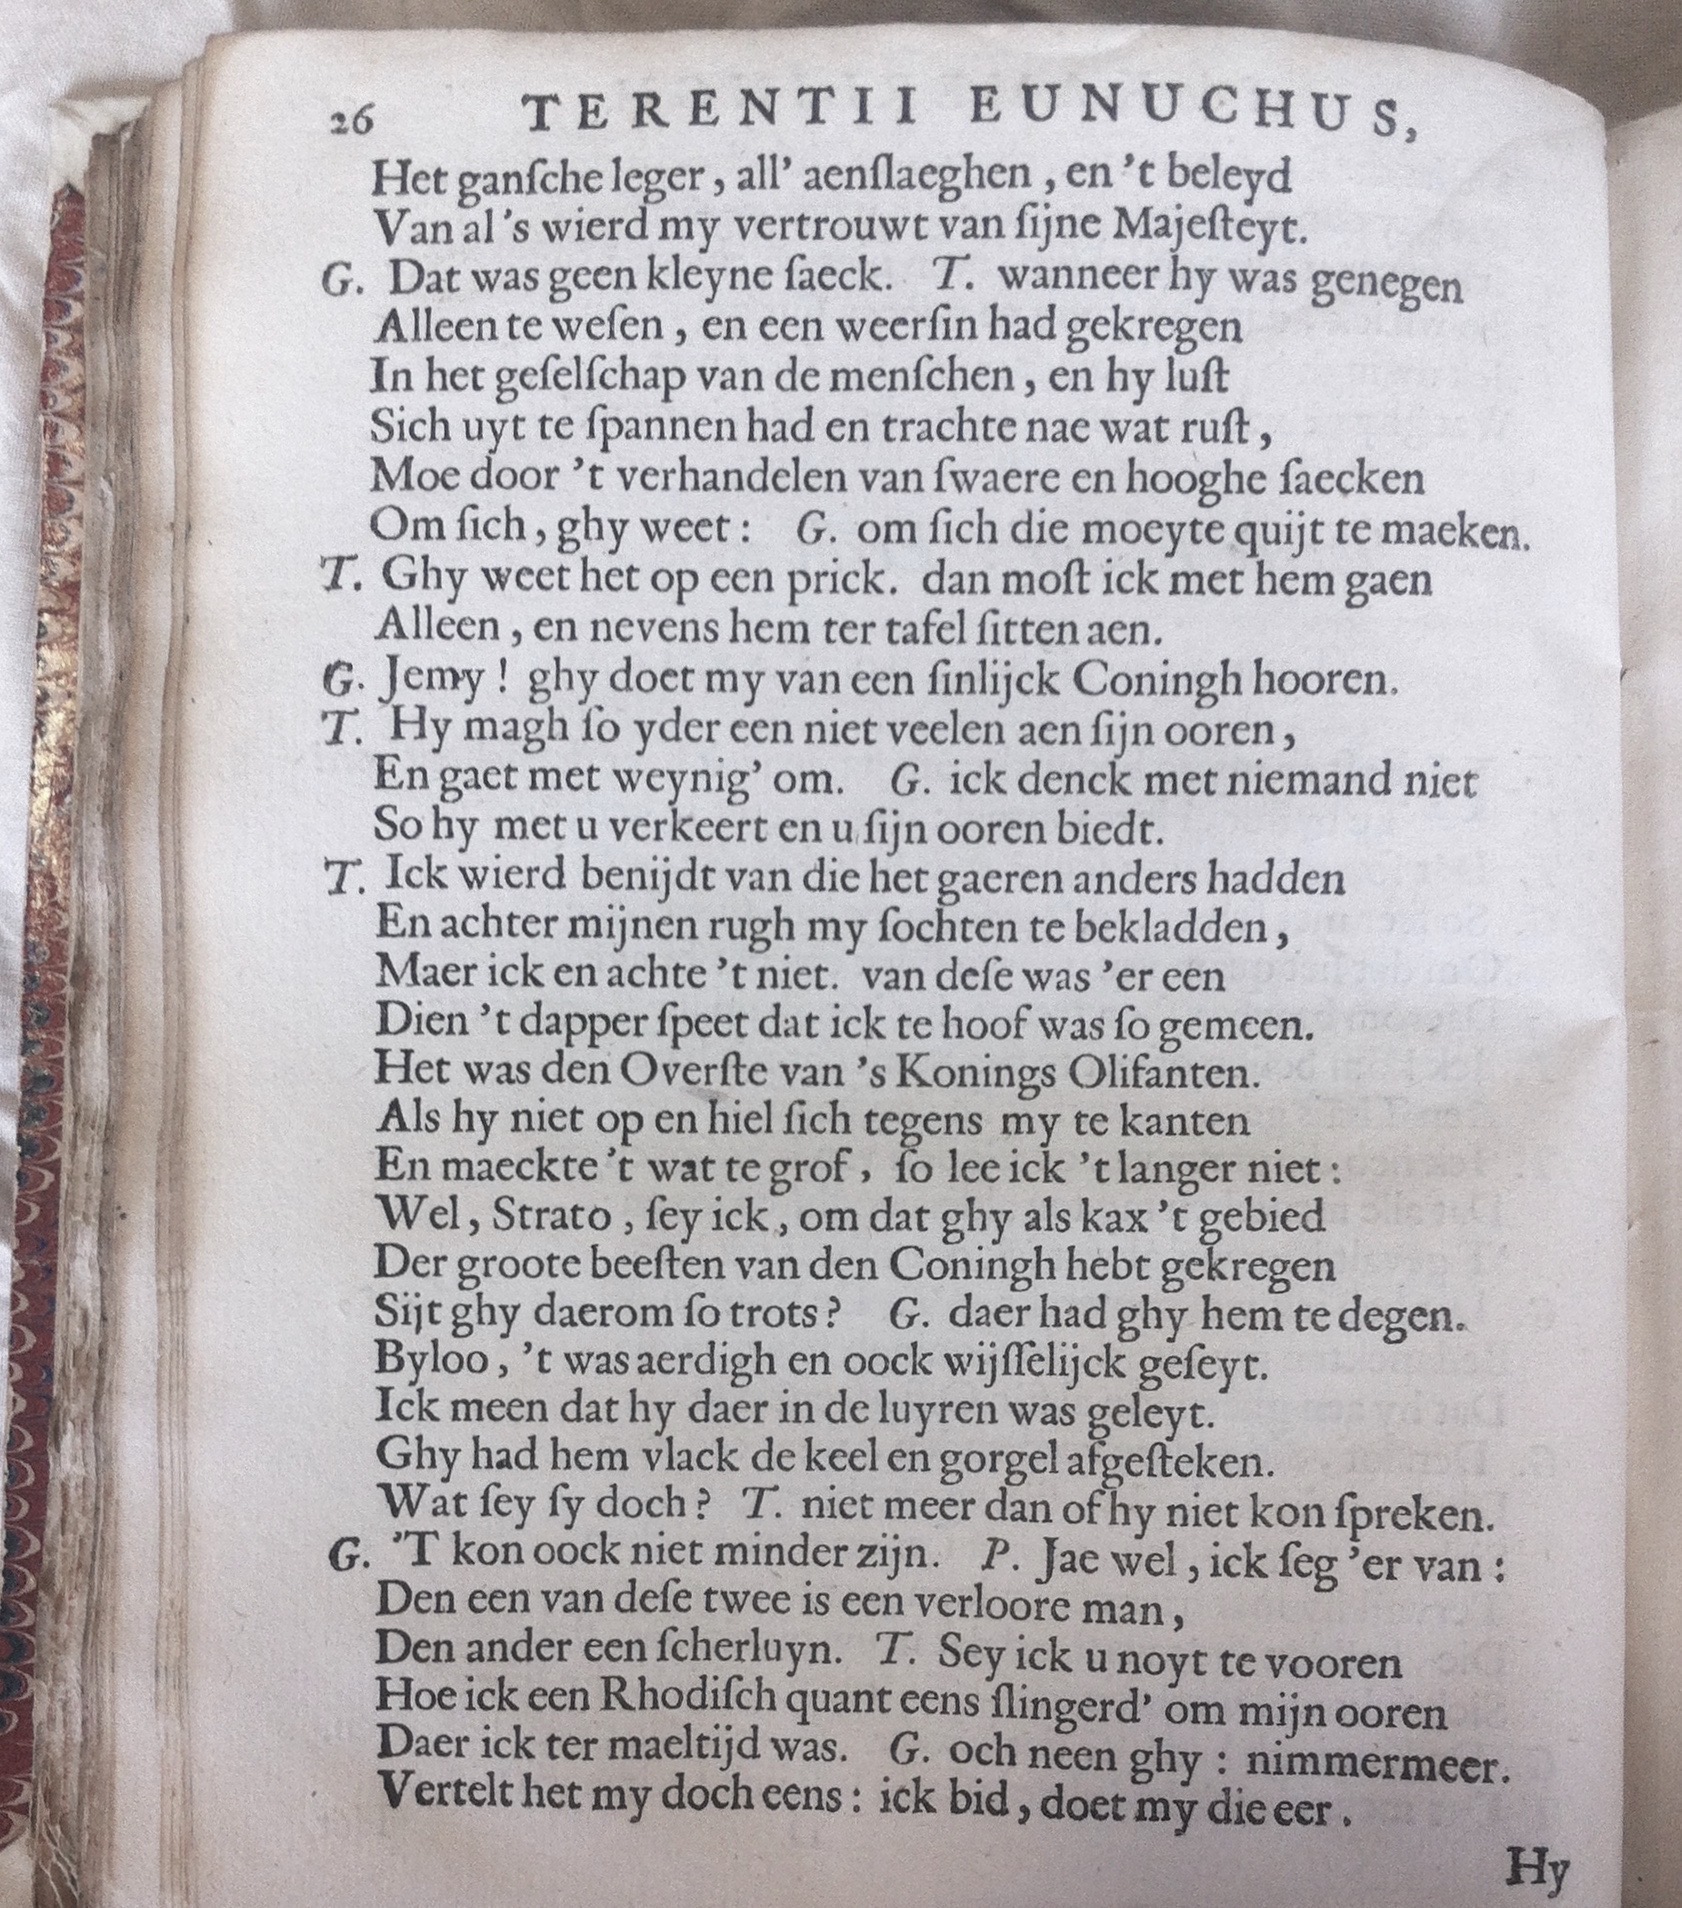 26 TERENTII EUNUCHUS,
Het ganſche leger, all' aenſlaeghen, en 't beleyd
Van al 's wierd my vertrouwt van ſijne Majeſteyt.
G. Dat was geen kleyne ſaeck. T. wanneer hy was genegen
Alleen te weſen, en een weerſin had gekregen
In het geſelſchap van de menſchen, en hy luſt
Sich uyt te ſpannen had en trachte nae wat ruſt,
Moe door 't verhandelen van ſwaere en hooghe ſaecken
Om ſich, ghy weet: G. om ſich die moeyte quijt te maeken.
T. Ghy weet het op een prick. dan moſt ick met hem gaen
Alleen, en nevens hem ter tafel ſitten aen.
G. Jemy! ghy doet my van een ſinlijck Coningh hooren.
T. Hy magh ſo yder een niet veelen aen ſijn ooren,
En gaet met weynig' om. G. ick denck met niemand niet
So hy met u verkeert en u ſijn ooren biedt.
T. Ick wierd benijdt van die het gaeren anders hadden
En achter mijnen rugh my ſochten te bekladden,
Maer ick en achte 't niet. van deſe was 'er een
Dien 't dapper ſpeet dat ick te hoof was ſo gemeen.
Het was den Overſte van 's Konings Olifanten.
Als hy niet op en hiel ſich tegens my te kanten
En maeckte 't wat te grof, ſo lee ick 't langer niet:
Wel, Strato, ſey ick, om dat ghy als kax 't gebied
Der groote beeſten van den Coningh hebt gekregen
Sijt ghy daerom ſo trots? G. daer had ghy hem te degen.
Byloo, 't was aerdigh en oock wijſſelijck geſeyt.
Ick meen dat hy daer in de luyren was geleyt.
Ghy had hem vlack de keel en gorgel afgeſteken.
Wat ſey ſy doch? T. niet meer dan of hy niet kon ſpreken.
G. 'T kon oock niet minder zijn. P. Jae wel, ick ſeg 'er van:
Den een van deſe twee is een verloore man,
Den ander een ſcherluyn. T. Sey ick u noyt te vooren
Hoe ick een Rhodiſch quant eens ſlingerd' om mijn ooren
Daer ick ter maeltijd was. G. och neen ghy: nimmermeer.
Vertelt het my doch eens: ick bid, doet my die eer.
Hy